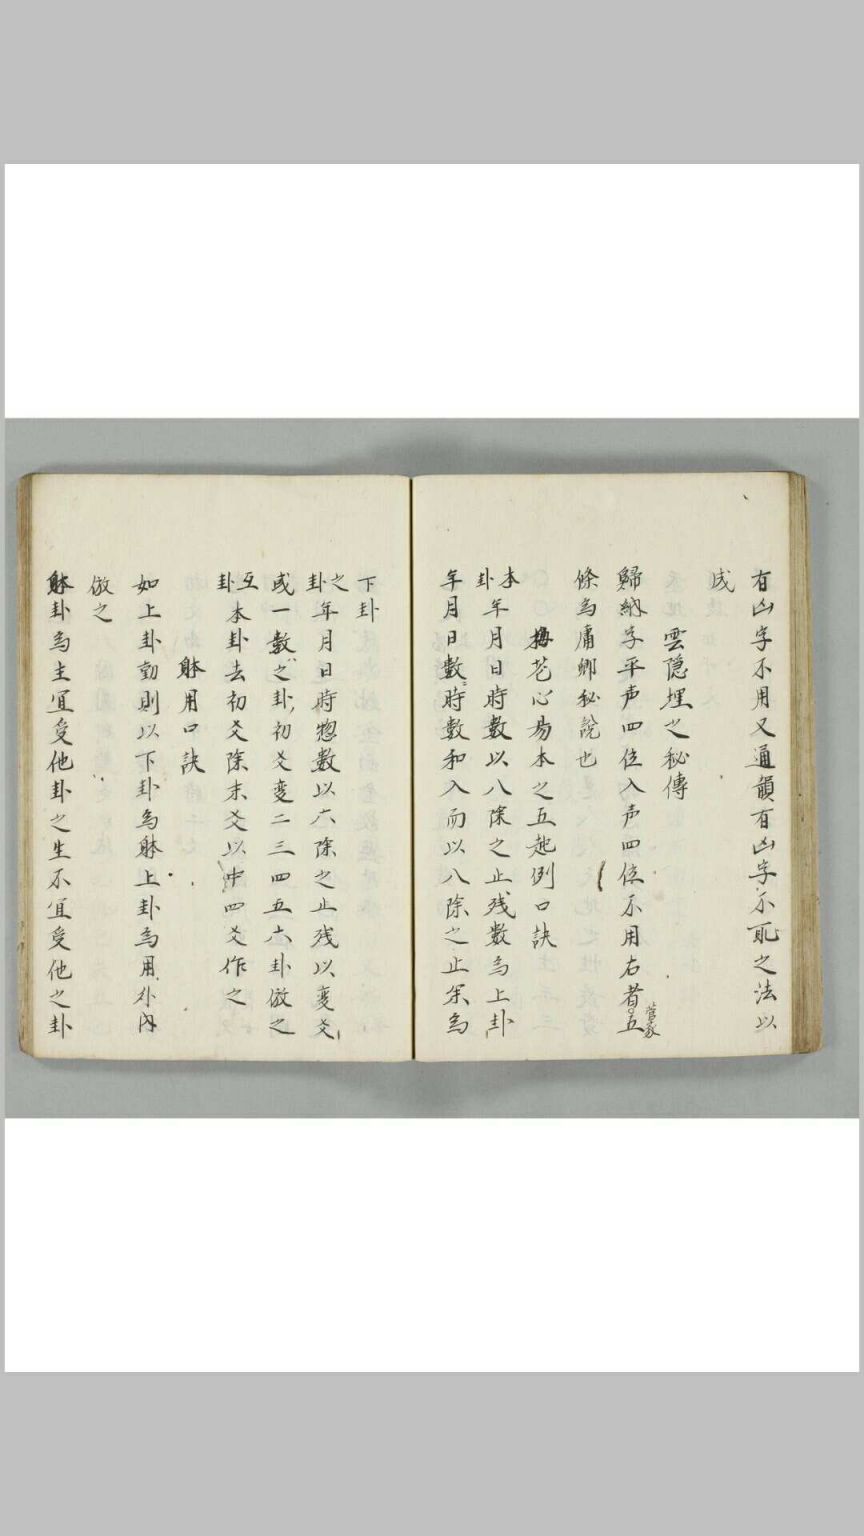 有凶字不用又通韻有凶字不取之法以
成
雲隠埋之秘傳
歸納字平声四位入声四位不用右者五
菅家
條為庸郷秘説也
梅花心易本之五起例口訣
本卦 年月日時數以八除之止残數為上卦
年月日數時數和入而以八除之止余為
下卦
之卦 年月日時惣數以六除之止残以変爻
或一數之卦初爻変二三四五六卦倣之
互卦 本卦去初爻除末爻以中四爻作之
躰用口訣
如上卦動則以下卦為躰上卦為用外内
倣之
躰卦為主宜受他卦之生不宜受他之卦